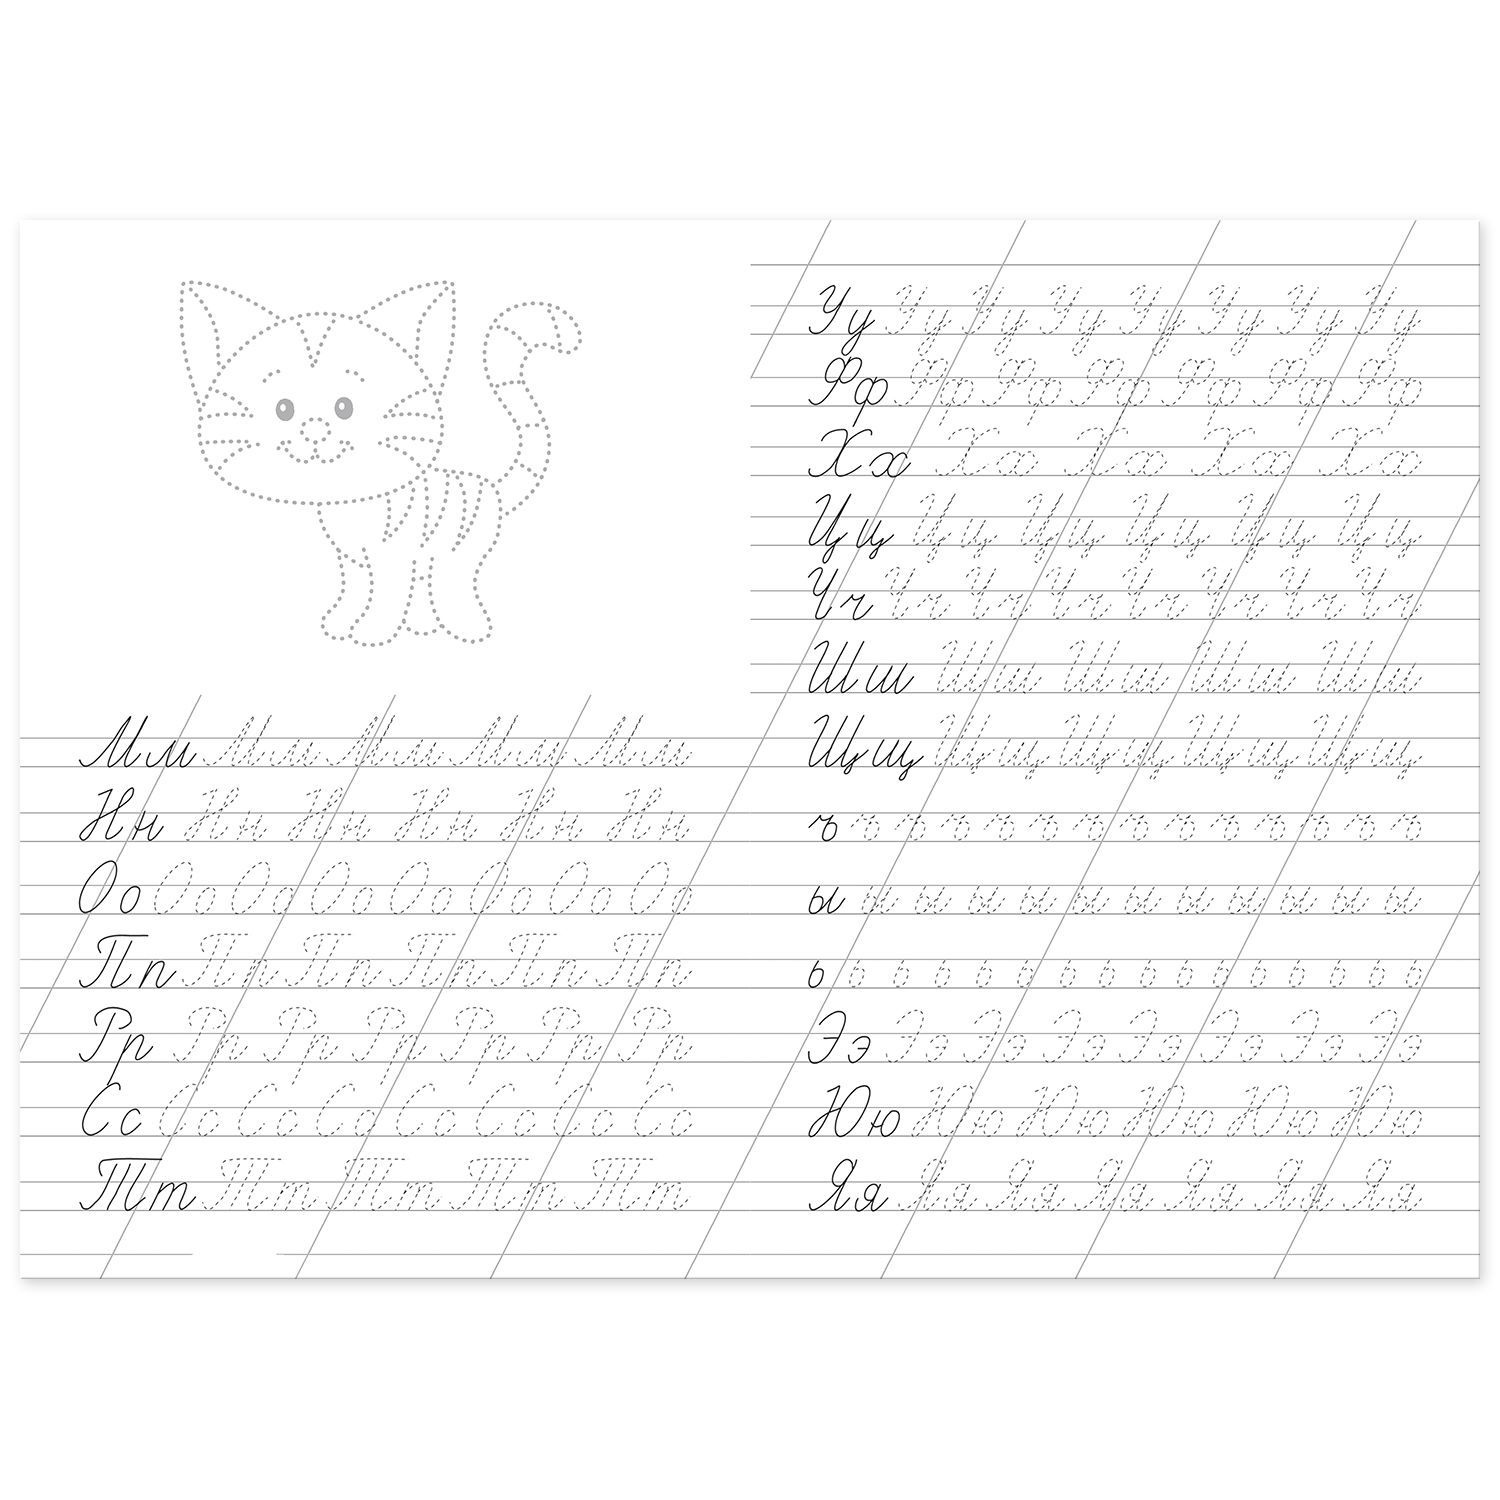 Мм Мм Мм Мм Мм
Нн Нн Нн Нн Нн Нн
Оо Оо Оо Оо Оо Оо Оо Оо
Пп Пп Пп Пп Пп Пп
Рр Рр Рр Рр Рр Рр Рр
Сс Сс Сс Сс Сс Сс Сс Сс
Тт Тт Тт Тт Тт
Уу Уу Уу Уу Уу Уу Уу Уу
Фф Фф Фф Фф Фф Фф Фф
Хх Хх Хх Хх Хх
Цц Цц Цц Цц Цц Цц
Чч Чч Чч Чч Чч Чч Чч Чч
Шш Шш Шш Шш Шш
Щщ Щщ Щщ Щщ Щщ
ъ ъ ъ ъ ъ ъ ъ ъ ъ ъ ъ ъ ъ ъ
ы ы ы ы ы ы ы ы ы ы ы ы
ь ь ь ь ь ь ь ь ь ь ь ь ь ь ь ь
Ээ Ээ Ээ Ээ Ээ Ээ Ээ Ээ
Юю Юю Юю Юю Юю Юю
Яя Яя Яя Яя Яя Яя Яя